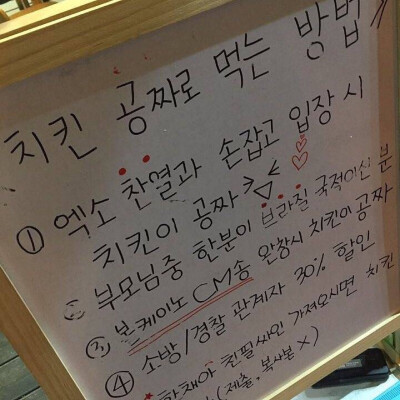 치킨 공짜로 먹는 방법
① 엑소 찬열과 손잡고 입장 시
치킨이 공짜
② 부모님중 한분이 브라질 국적이신 분
③ 본케이노 CM송 완창시 치킨이 공짜
④ 소방/경찰 관계자 30% 할인
친필싸인 가져오시면 치킨
(제출, 복사본 X)